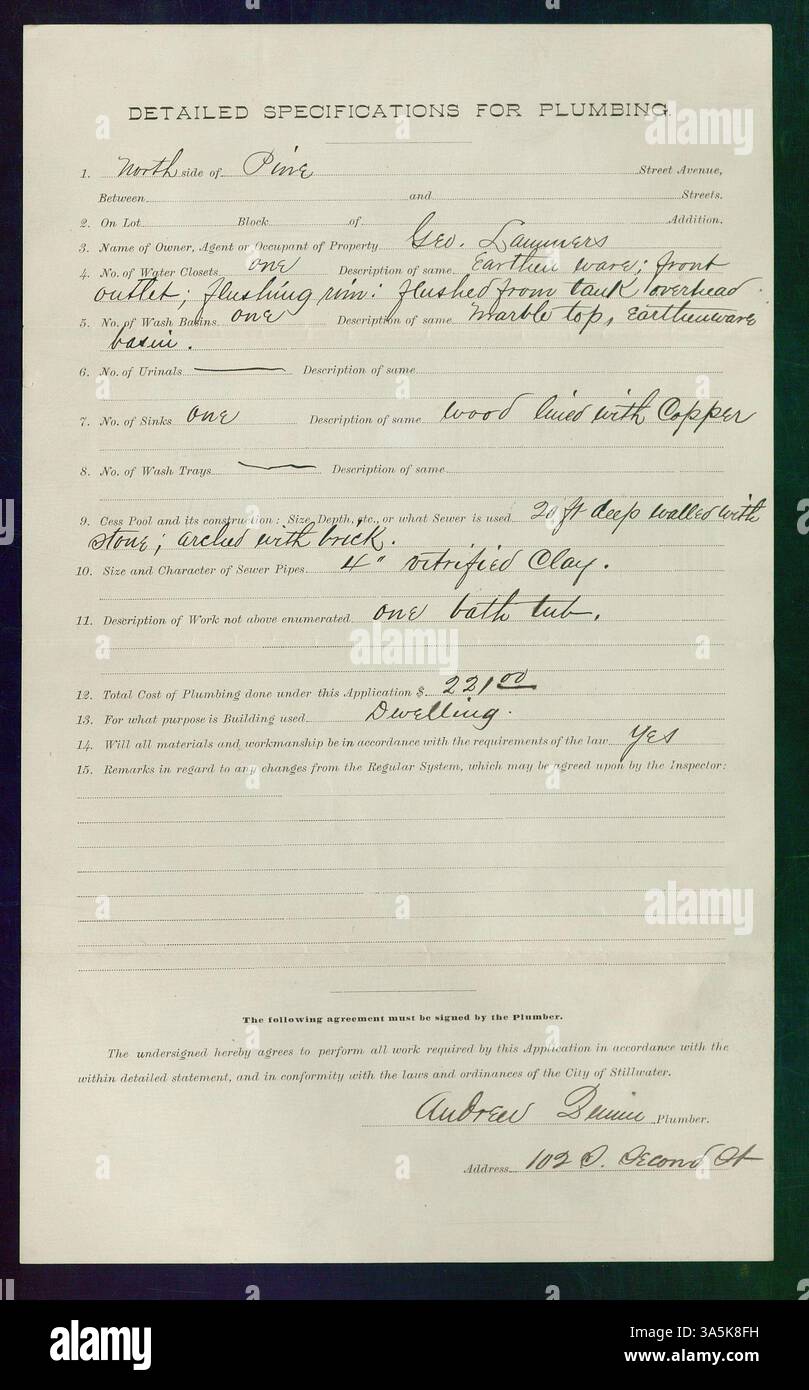 DETAILED SPECIFICATIONS FOR PLUMBING.
1. North side of Pine Street Avenue,
Between and Streets.
2. On Lot Block of Addition.
3. Name of Owner, Agent or Occupant of Property Geo. Lammers
4. No. of Water Closets one Description of same Earthen ware; front
outlet; flushing rim: flushed from tank overhead.
5. No. of Wash Basins one Description of same Marble top, Earthenware
basin.
6. No. of Urinals — Description of same
7. No. of Sinks one Description of same wood lined with Copper
8. No. of Wash Trays — Description of same
9. Cess Pool and its construction: Size, Depth, etc., or what Sewer is used 20 ft deep walled with
stone; arched with brick.
10. Size and Character of Sewer Pipes 4" vitrified Clay.
11. Description of Work not above enumerated one bath tub.
12. Total Cost of Plumbing done under this Application $ 221 00
13. For what purpose is Building used Dwelling.
14. Will all materials and workmanship be in accordance with the requirements of the law Yes
15. Remarks in regard to any changes from the Regular System, which may be agreed upon by the Inspector:
The following agreement must be signed by the Plumber.
The undersigned hereby agrees to perform all work required by this Application in accordance with the
within detailed statement, and in conformity with the laws and ordinances of the City of Stillwater.
Andrew Plumber.
Address 102 S. Second St
alamy
Image ID: 3A5K8FH
www.alamy.com